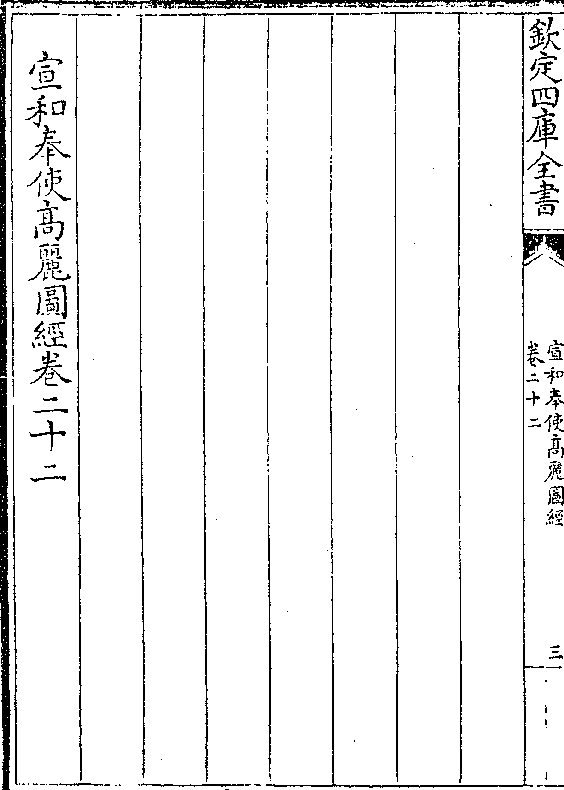 欽定四庫全書
宣和奉使髙麗圖經
卷二十二
三
宣和奉使髙麗圖經卷二十二